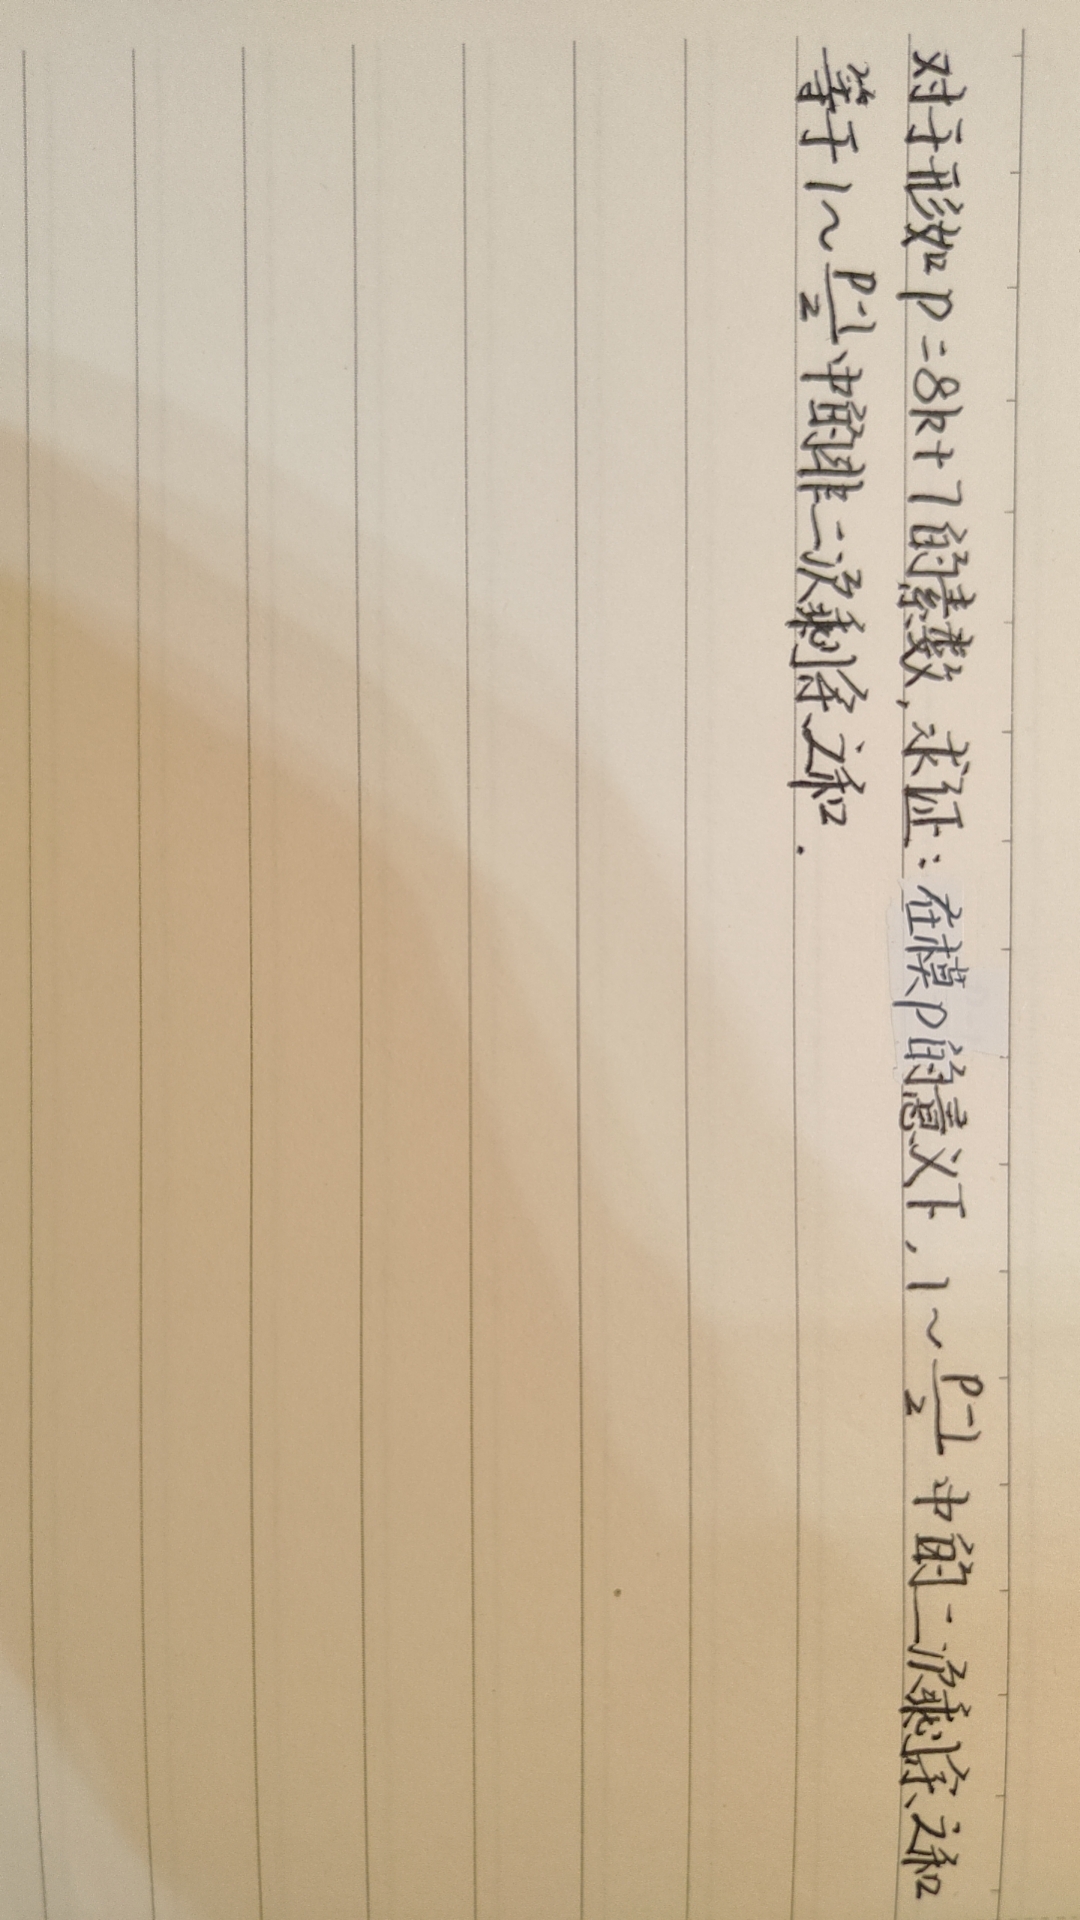 对于形如p=8k+7的素数,求证:在模p的意义下,1~\frac{p-1}{2}中的二次剩余之和
等于1~\frac{p-1}{2}中的非二次剩余之和.